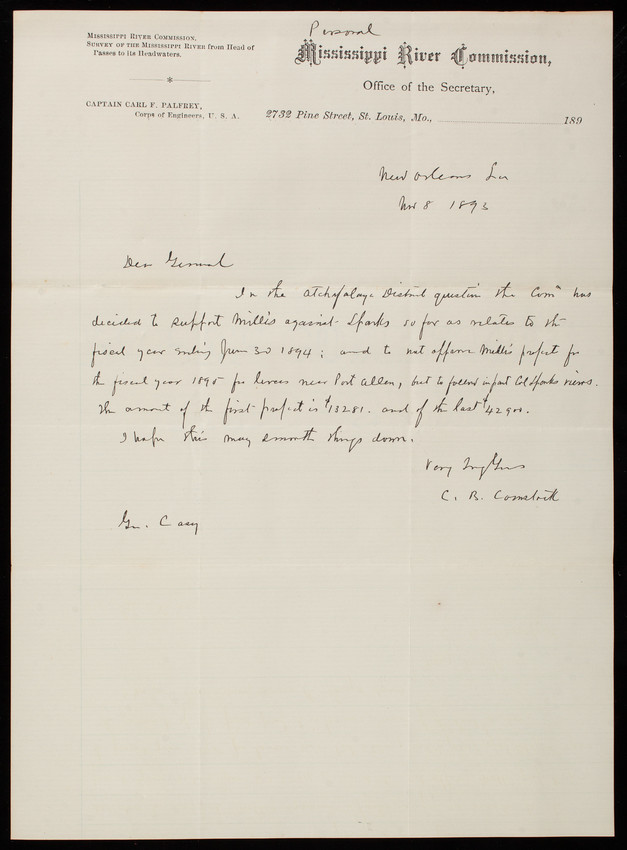 Personal
Mississippi River Commission,
Survey of the Mississippi River from Head of
Passes to its Headwaters.
Captain Carl F. Palfrey,
Corps of Engineers, U. S. A.
Mississippi River Commission,
Office of the Secretary,
2732 Pine Street, St. Louis, Mo., 189
New Orleans La
Nov 8 1893
Dear General
In the Atchafalaya District question the Comn has
decided to support Millis against Sparks so far as relates to the
fiscal year ending June 30 1894; and to not approve Millis project for
the fiscal year 1895 for levees near Port Allen, but to follow in part Col Sparks views.
The amount of the first project is $13281. and of the last $42900.
I hope this may smooth things down.
Very Truly Yours
C. B. Comstock
Gen. Casey